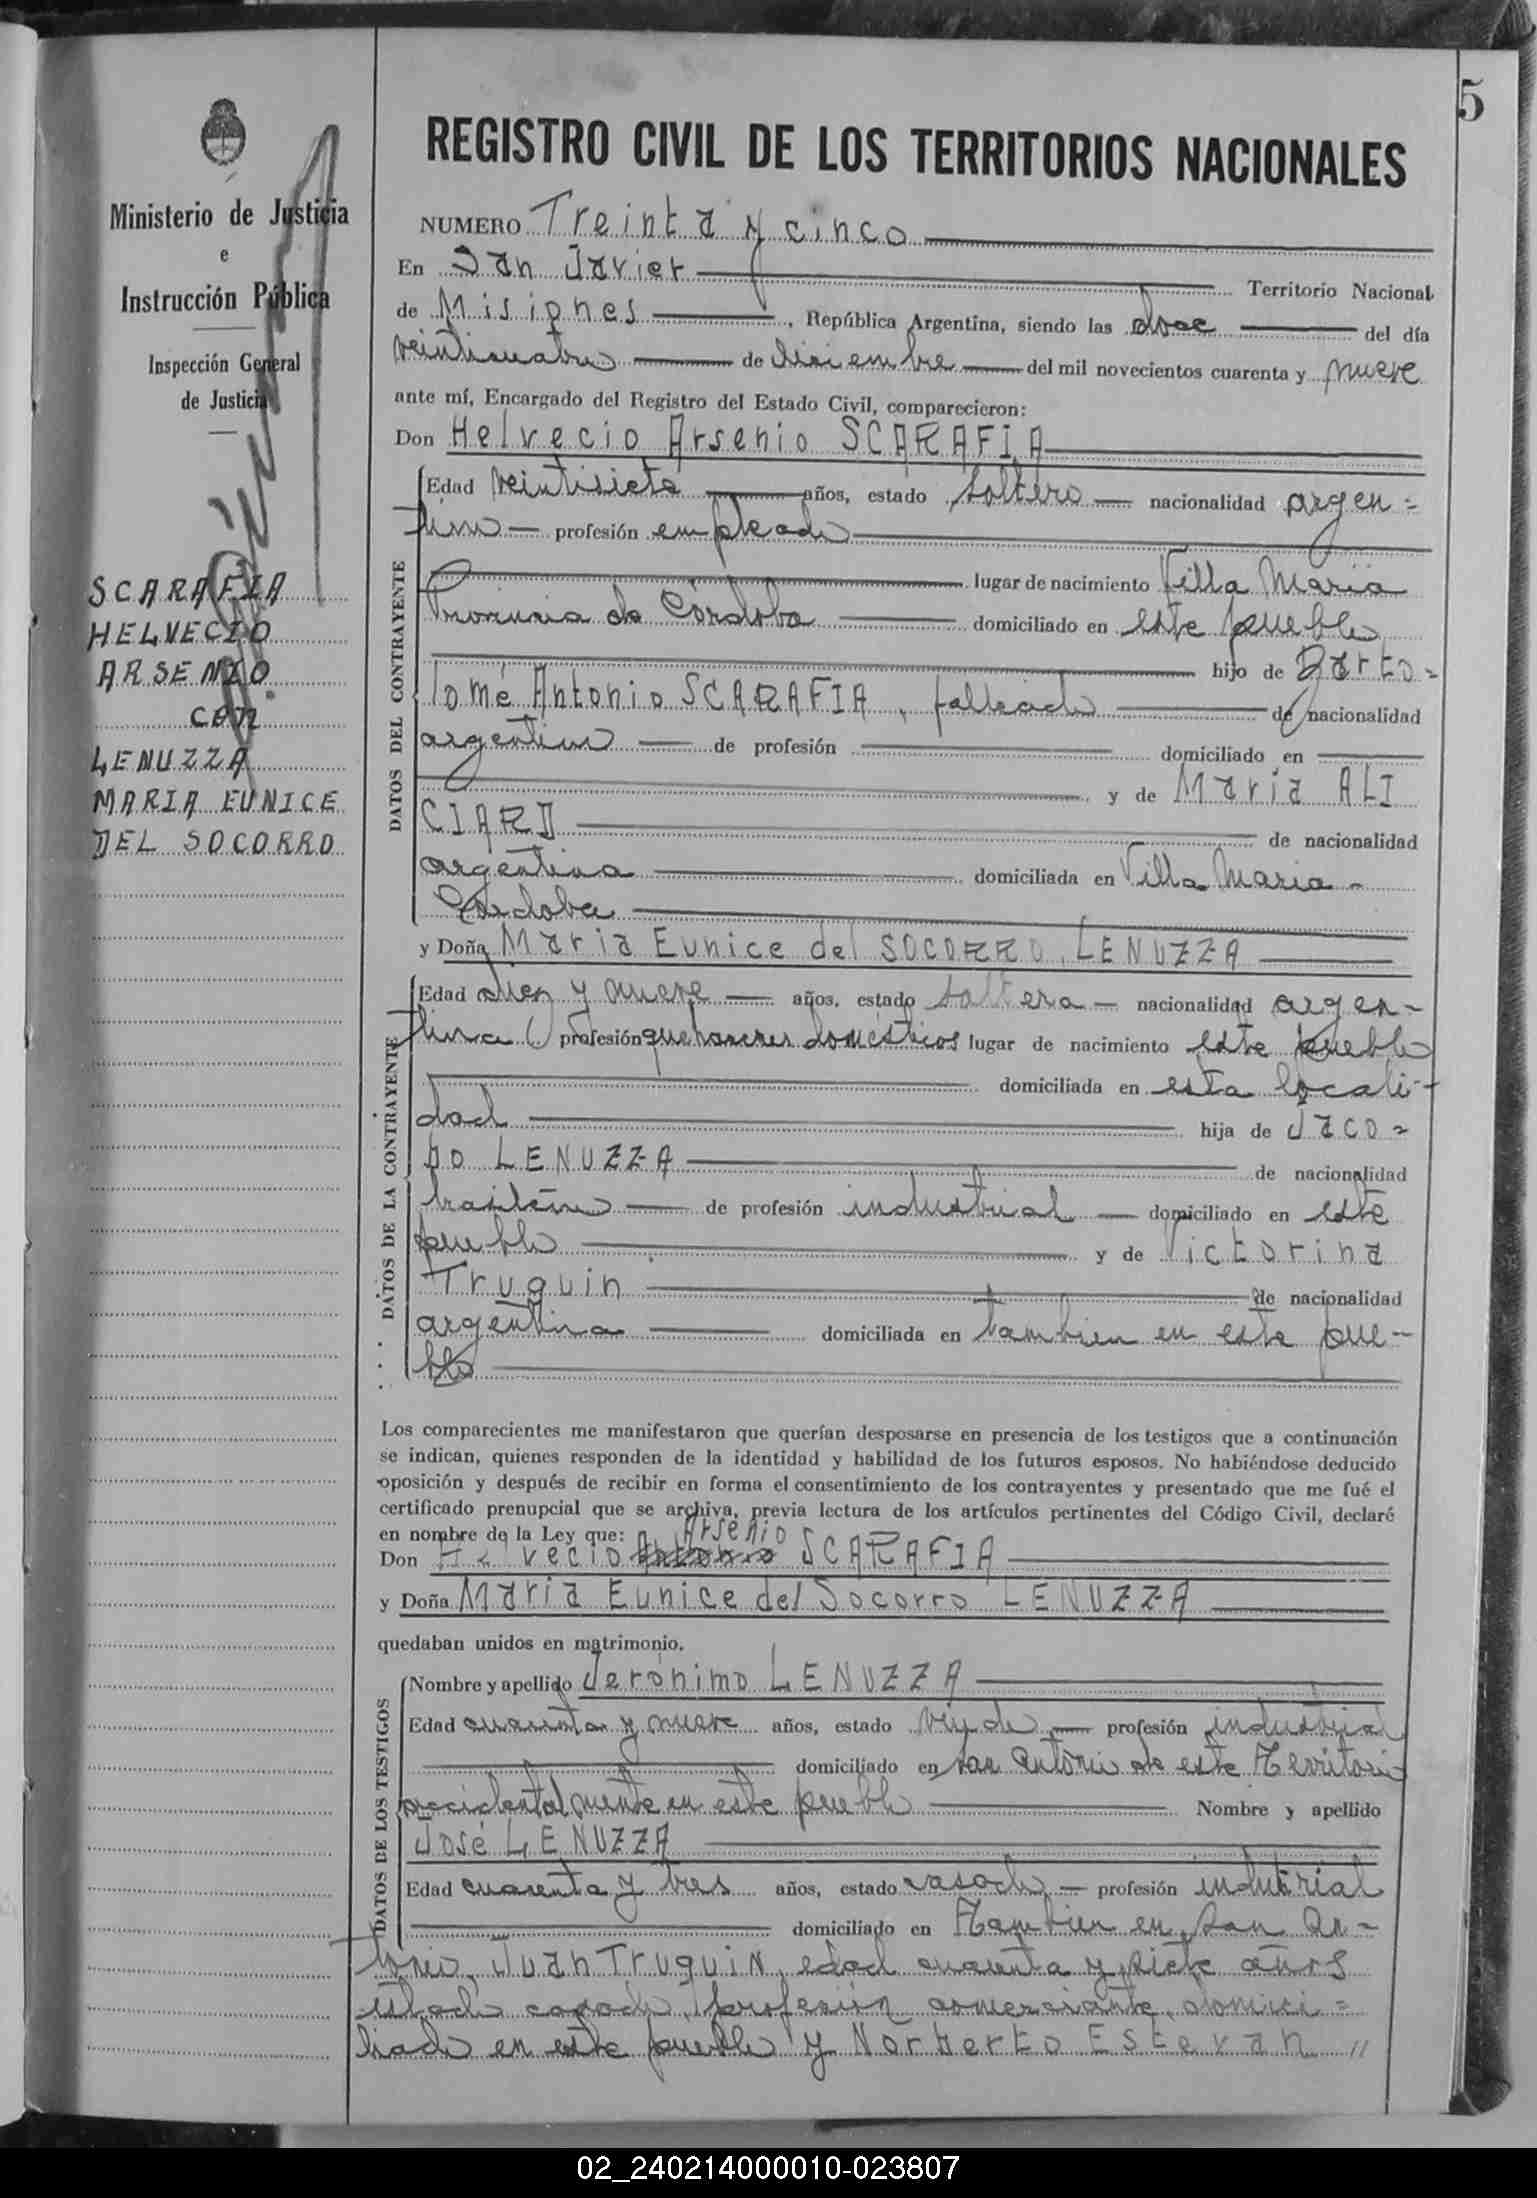 5
Ministerio de Justicia
e
Instrucción Pública
Inspección General
de Justicia
SCARAFIA
HELVECIO
ARSENIO
CON
LENUZZA
MARIA EUNICE
DEL SOCORRO
REGISTRO CIVIL DE LOS TERRITORIOS NACIONALES
NUMERO Treinta y cinco
En San Javier Territorio Nacional
de Misiones, República Argentina, siendo las doce del día
veinticuatro de diciembre del mil novecientos cuarenta y nueve
ante mí, Encargado del Registro del Estado Civil, comparecieron:
Don Helvecio Arsenio SCARAFIA
DATOS DEL CONTRAYENTE
Edad veintisiete años, estado soltero nacionalidad argen=
tino profesión empleado
lugar de nacimiento Villa Maria
Provincia de Córdoba domiciliado en este pueblo
hijo de Barto=
lomé Antonio SCARAFIA, fallecido de nacionalidad
argentino de profesión domiciliado en
y de Maria ALI
CIARD de nacionalidad
argentina domiciliada en Villa Maria -
Cordoba
y Doña Maria Eunice del SOCORRO LENUZZA
DATOS DE LA CONTRAYENTE
Edad diez y nueve años, estado soltera nacionalidad argen-
tina profesión quehaceres domésticos lugar de nacimiento este pueblo
domiciliada en esta locali-
dad hija de Jaco=
bo LENUZZA de nacionalidad
brasileño de profesión industrial domiciliado en este
pueblo y de Victorina
Truquin de nacionalidad
argentina domiciliada en tambien en este pue-
blo
Los comparecientes me manifestaron que querían desposarse en presencia de los testigos que a continuación
se indican, quienes responden de la identidad y habilidad de los futuros esposos. No habiéndose deducido
oposición y después de recibir en forma el consentimiento de los contrayentes y presentado que me fué el
certificado prenupcial que se archiva, previa lectura de los artículos pertinentes del Código Civil, declaré
en nombre de la Ley que: Arsenio
Don Helvecio Antonio SCARAFIA
y Doña Maria Eunice del Socorro LENUZZA
quedaban unidos en matrimonio.
DATOS DE LOS TESTIGOS
Nombre y apellido Jerónimo LENUZZA
Edad cuarenta y nueve años, estado viudo profesión industrial
domiciliado en San Antonio de este Territorio
accidentalmente en este pueblo Nombre y apellido
José LENUZZA
Edad cuarenta y tres años, estado casado profesión industrial
domiciliado en tambien en San An-
tonio, Juan Truquin, edad cuarenta y siete años
estado casado, profesión comerciante, domici=
liado en este pueblo y Norberto Estevan "
02_240214000010-023807